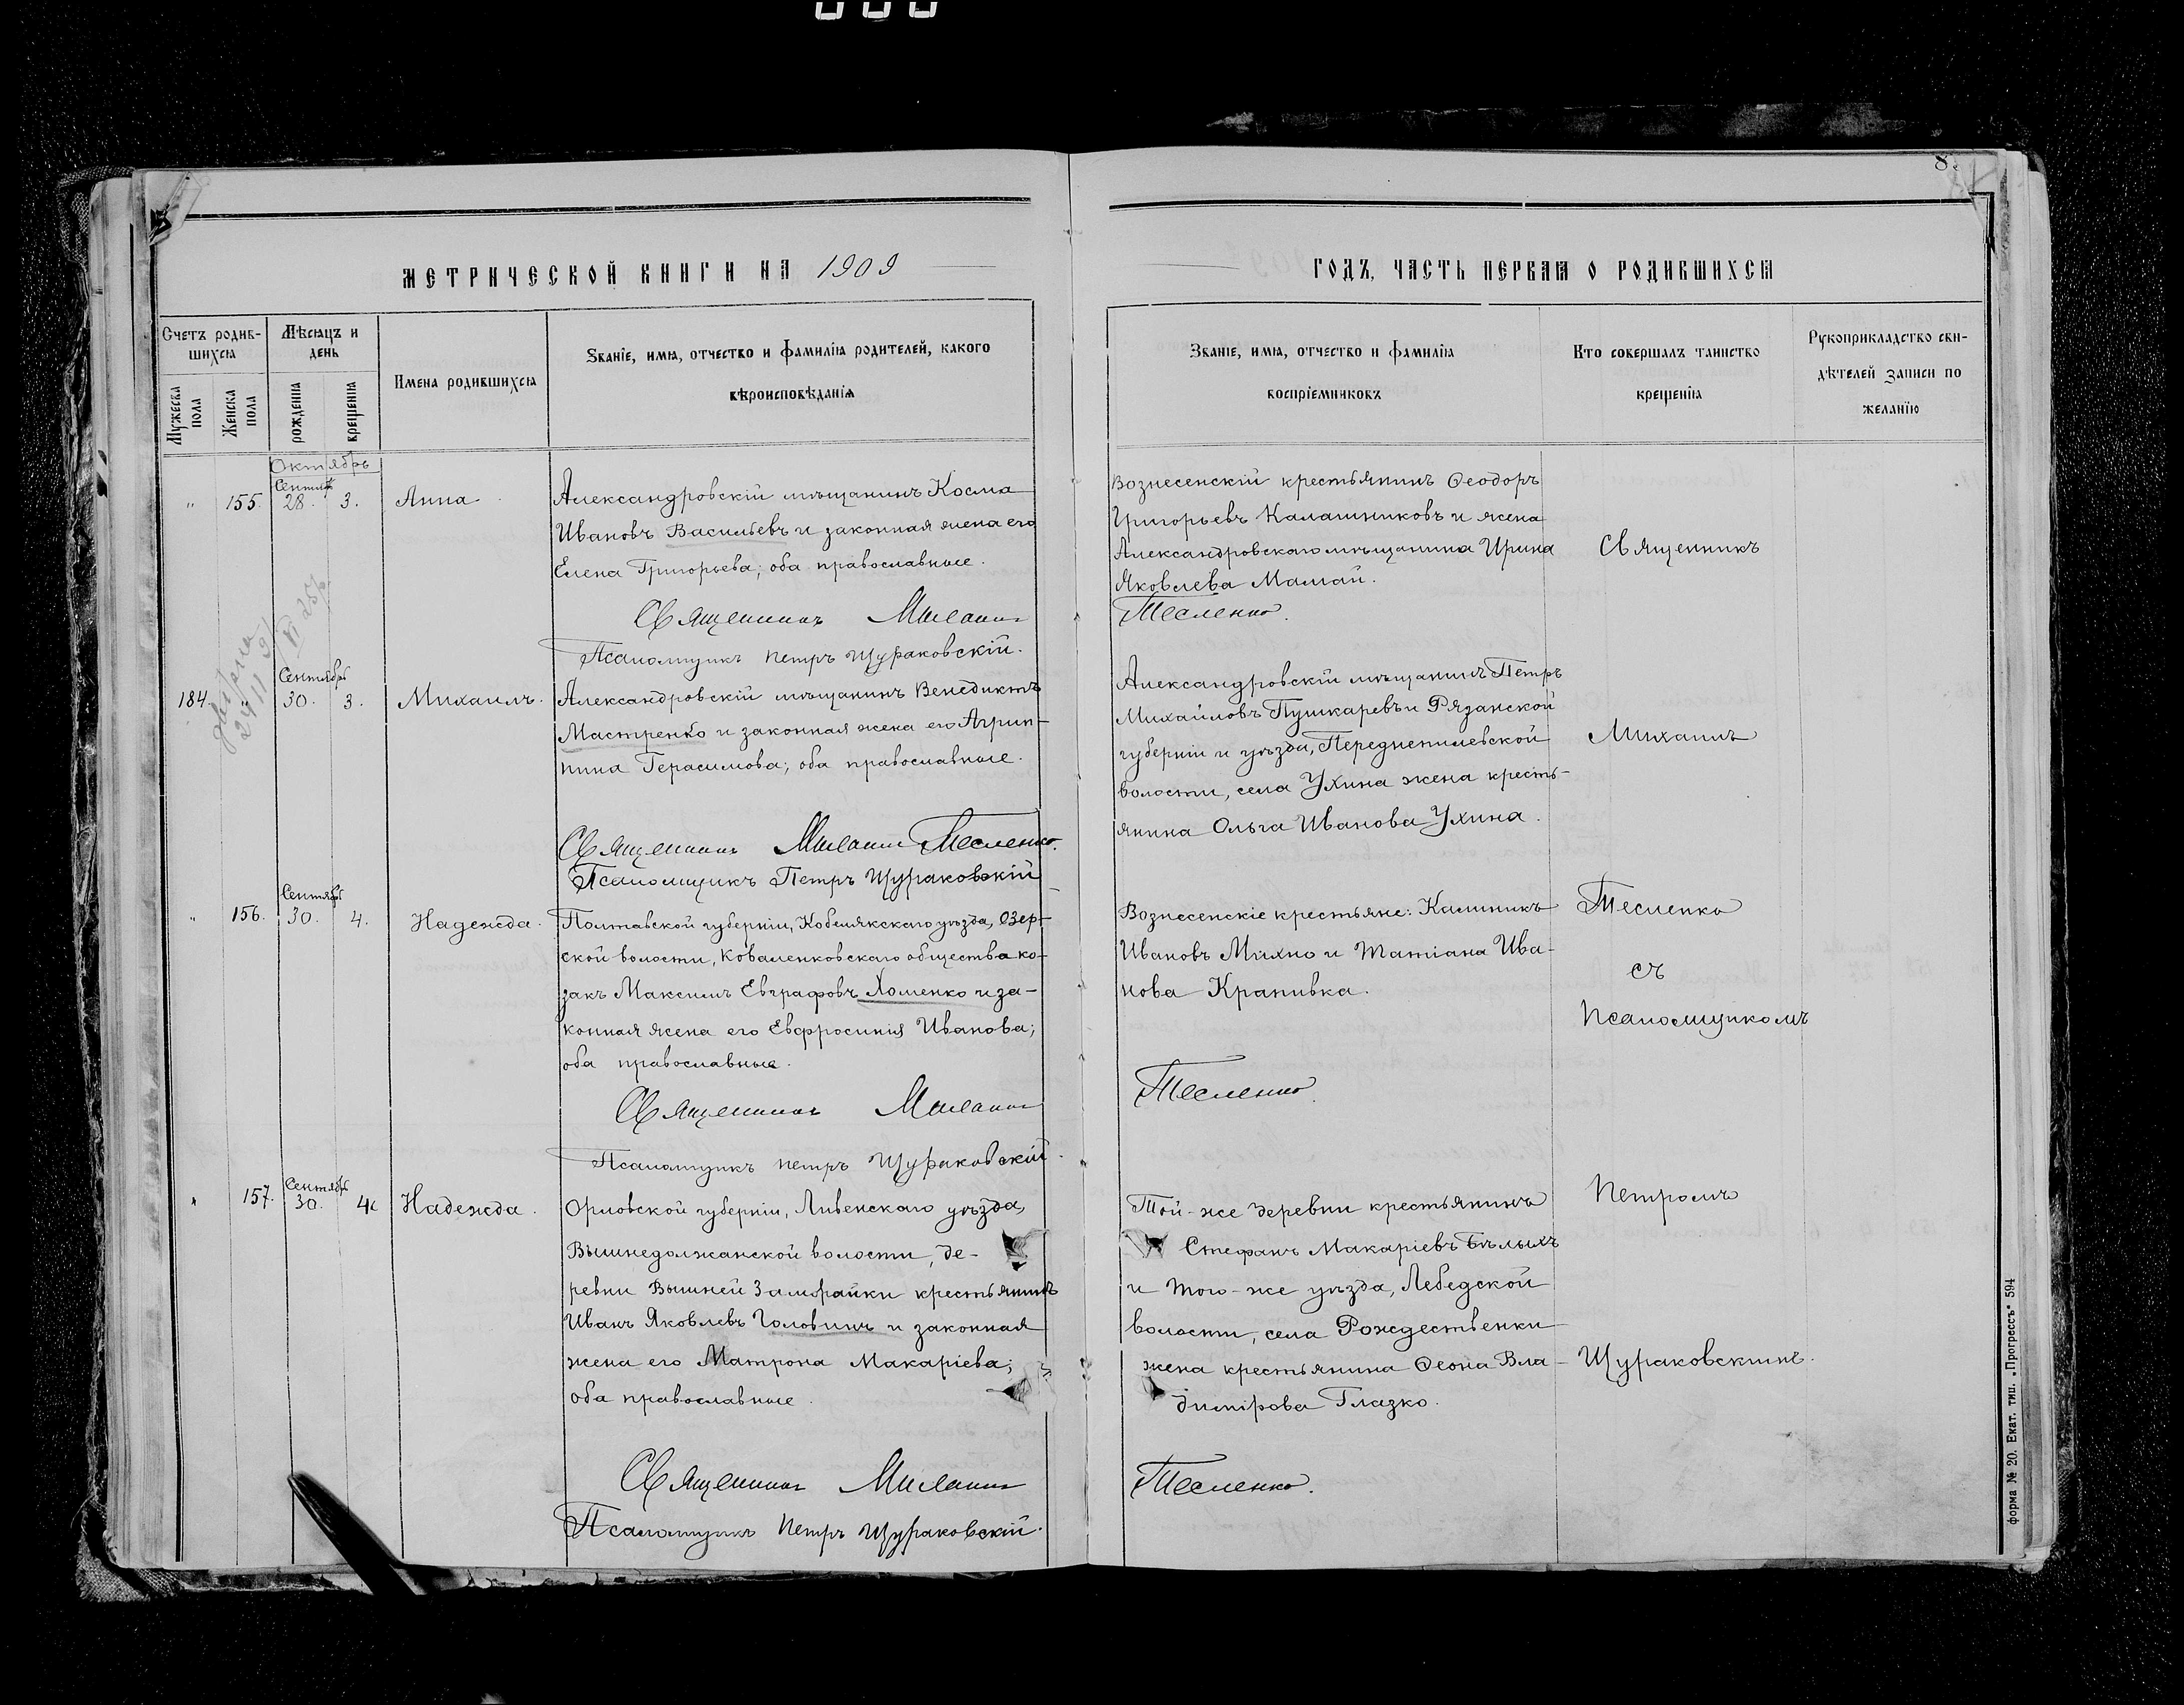 8
МЕТРИЧЕСКОЙ КНИГИ НА 1909
ГОДЪ, ЧАСТЬ ПЕРВАЯ О РОДИВШИХСЯ
Счетъ родив-
шихся
Мѣсяцъ и
день
Мужеска
пола
Женска
пола
рожденія
крещенія
Имена родившихся
Званіе, имя, отчество и фамилія родителей, какого
вѣроисповѣданія
Званіе, имя, отчество и фамилія
воспріемниковъ
Кто совершалъ таинство
крещенія
Рукоприкладство сви-
дѣтелей записи по
желанію
Октябрь
Сентяб
" 155. 28. 3. Анна
Александровскій мѣщанинъ Косма
Ивановъ Васильевъ и законная жена его
Елена Григорьева; оба православные.
Священникъ Михаилъ
Псаломщикъ Петръ Щураковскій.
Вознесенскій крестьянинъ Ѳеодоръ
Григорьевъ Калашниковъ и жена
Александровскаго мѣщанина Ирина
Яковлева Мамай.
Тесленко.
Сентябрь
184. " 30. 3. Михаилъ.
Александровскій мѣщанинъ Венедиктъ
Мастренко и законная жена его Агрип-
пина Герасимова; оба православные.
Священникъ Михаилъ Тесленко.
Псаломщикъ Петръ Щураковскій
Александровскій мѣщанинъ Петръ
Михайловъ Пушкаревъ и Рязанской
губерніи и уѣзда,
волости, села Ухина жена кресть-
янина Ольга Иванова Ухина.
Сентябрь
" 156. 30. 4. Надежда.
Полтавской губерніи, Кобелякскаго уѣзда, Озер-
ской волости, Коваленковскаго общества ко-
закъ Максимъ Евграфовъ Хоменко и за-
конная жена его Евфросинія Иванова;
оба православные.
Священникъ Михаилъ
Псаломщикъ Петръ Щураковскій.
Вознесенскіе крестьяне: Калиникъ
Ивановъ Михно и Татіана Ива-
нова Крапивка.
Тесленко.
Сентябрь
" 157. 30. 4. Надежда.
Орловской губерніи, Ливенскаго уѣзда,
Вышнедолжанской волости, де-
ревни Вышней Замарайки крестьянинъ
Иванъ Яковлевъ Головинъ и законная
жена его Матрона Макаріева;
оба православные.
Священникъ Михаилъ
Псаломщикъ Петръ Щураковскій.
Той-же деревни крестьянинъ
Стефанъ Макаріевъ Бѣлыхъ
и того-же уѣзда, Лебедской
волости, села Рождественки
жена крестьянина Ѳеона Вла-
димірова Глазко.
Тесленко.
Священникъ
Михаилъ
Тесленко
съ
Псаломщикомъ
Петромъ
Щураковскимъ.
Форма № 20. Екат. тип. „Прогрессъ" 594